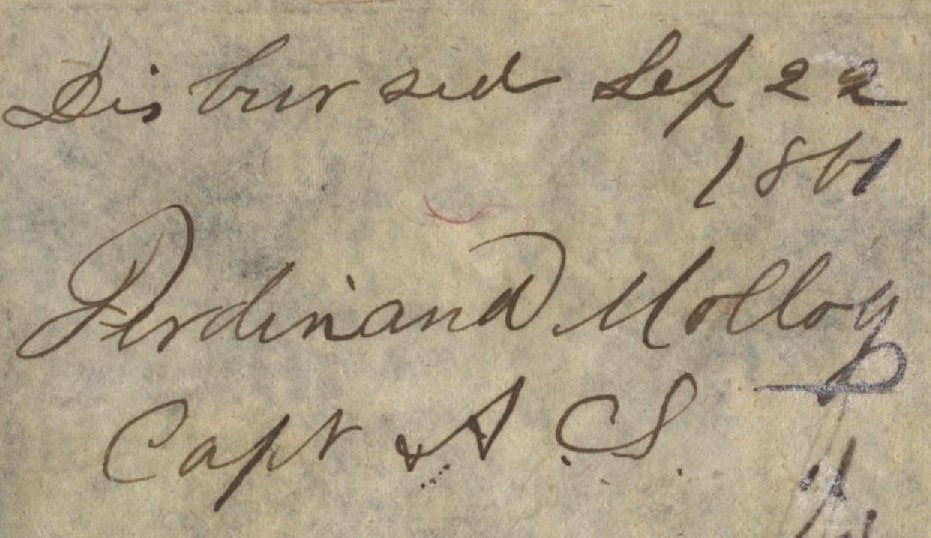 Disbursed Sep 22
1861
Ferdinand Molloy
Capt & A. C. S.